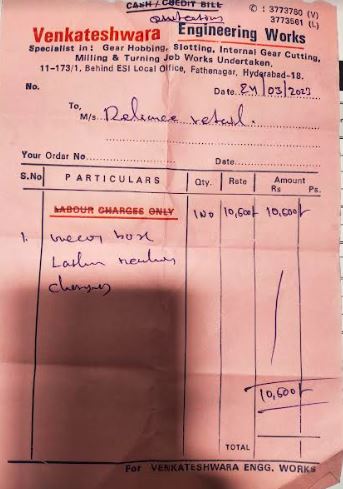 CASH / CREDIT BILL
Quotation
✆ : 3773760 (V)
3773561 (L)
Venkateshwara Engineering Works
Specialist in : Gear Hobbing, Slotting, Internal Gear Cutting,
Milling & Turning Job Works Undertaken.
11-173/1, Behind ESI Local Office, Fathenagar, Hyderabad-18.
No. Date. 24/03/2023
To,
M/s. Reliance retail.
Your Order No. Date
S.No PARTICULARS Qty. Rate Amount
Rs Ps.
LABOUR CHARGES ONLY 1NO 10,500/- 10,500/-
1.
charges
10,500/-
TOTAL
For VENKATESHWARA ENGG. WORKS